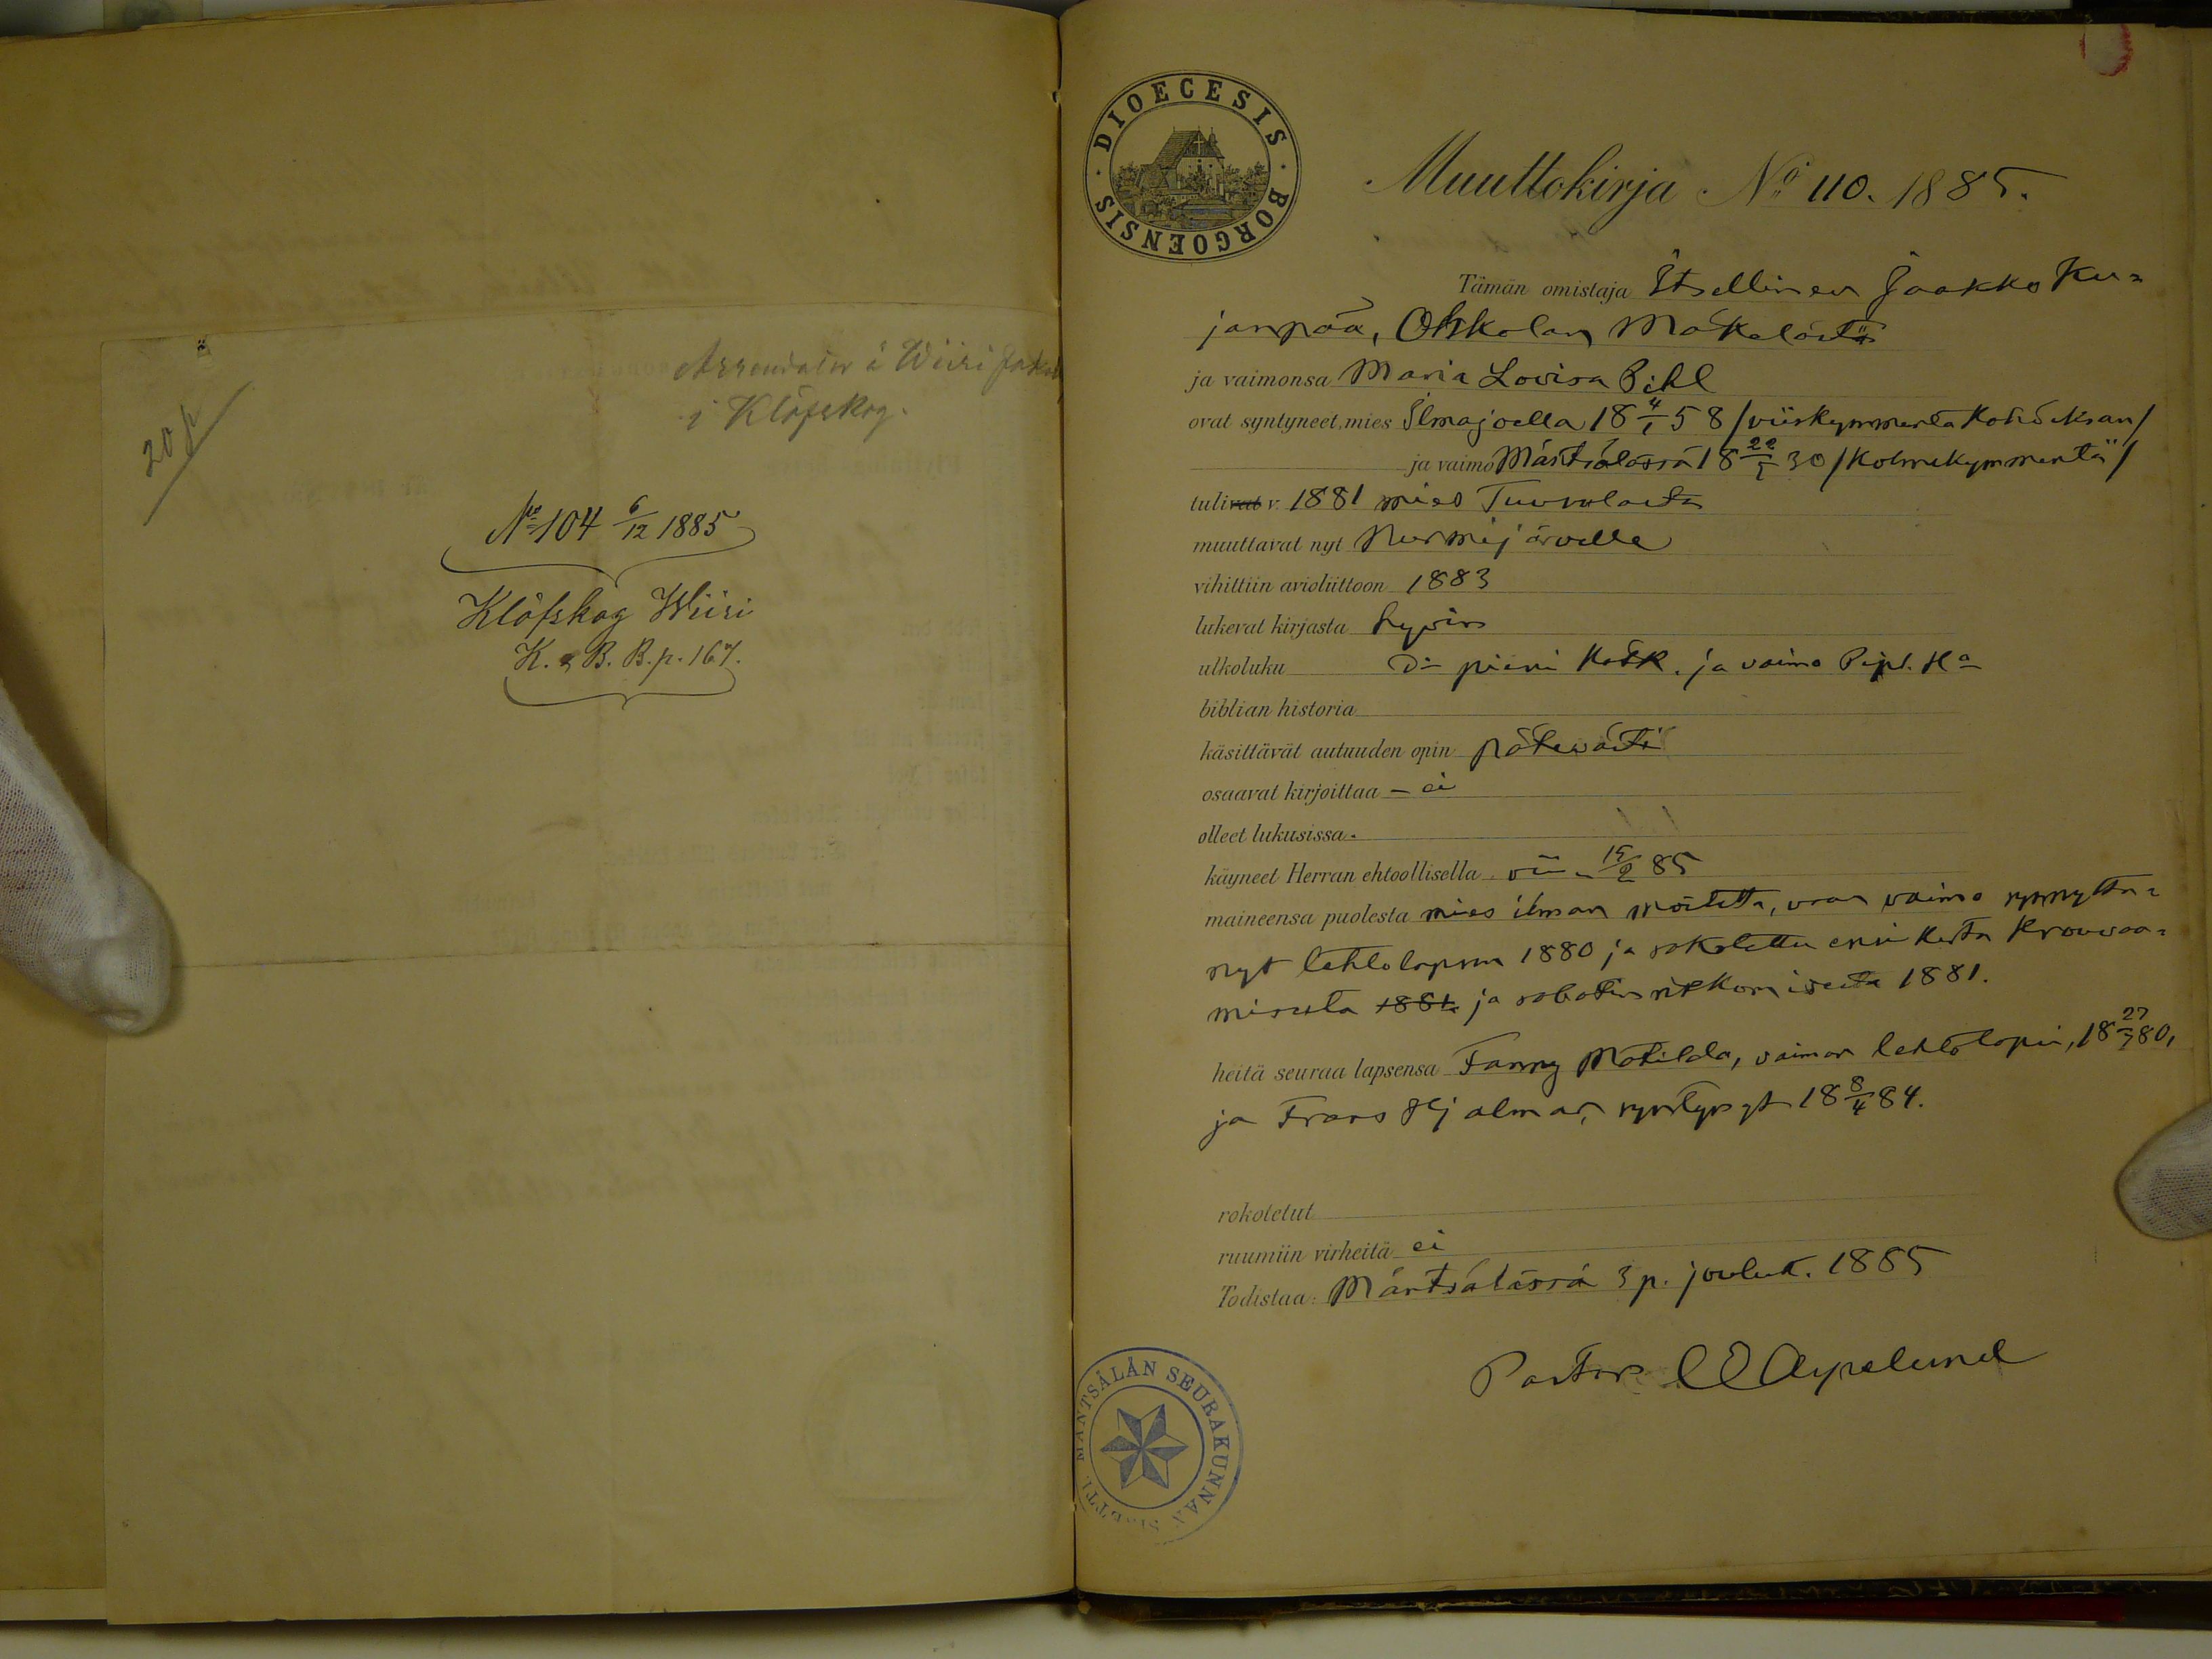 Arrendator å Wiiri Jakob
i Klöfskog.
208
No 104 6/12 1885
Klöfskog Wiiri
K. B. B. p. 167.
DIOECESIS BORGOENSIS
Muuttokirja No 110. 1885.
Tämän omistaja Itsellinen Jaakko Ku=
janpää, Ohkolan Mäkelästä
ja vaimonsa Maria Lovisa Pihl
ovat syntyneet, mies Ilmajoella 18 4/1 58 /viiskymmentä kahdeksan/
ja vaimo Mäntsälässä 18 22/5 30 /kolmekymmentä/
tulivat v. 1881 mies Tuusulasta
muuttavat nyt Nurmijärvelle
vihittiin avioliittoon 1883
lukevat kirjasta hyvin
ulkoluku Do pieni Katk. ja vaimo
biblian historia
käsittävät autuuden opin pätevästi
osaavat kirjoittaa - ei
olleet lukusissa
käyneet Herran ehtoollisella 15/2 85
maineensa puolesta mies ilman moitetta, vaan vaimo synnyttä=
nyt lehtolapsen 1880 ja sakotettu ensi kerta
1881 ja sabatin rikkomisesta 1881.
heitä seuraa lapsensa Fanny Matilda, vaimon lehtolapsi, 18 27/7 80,
ja Frans Hjalmar, syntynyt 18 8/4 84.
rokotetut
ruumiin virheitä ei
Todistaa: Mäntsälässä 3 p. jouluk. 1885
Pastor
MÄNTSÄLÄN SEURAKUNNAN SINETTI